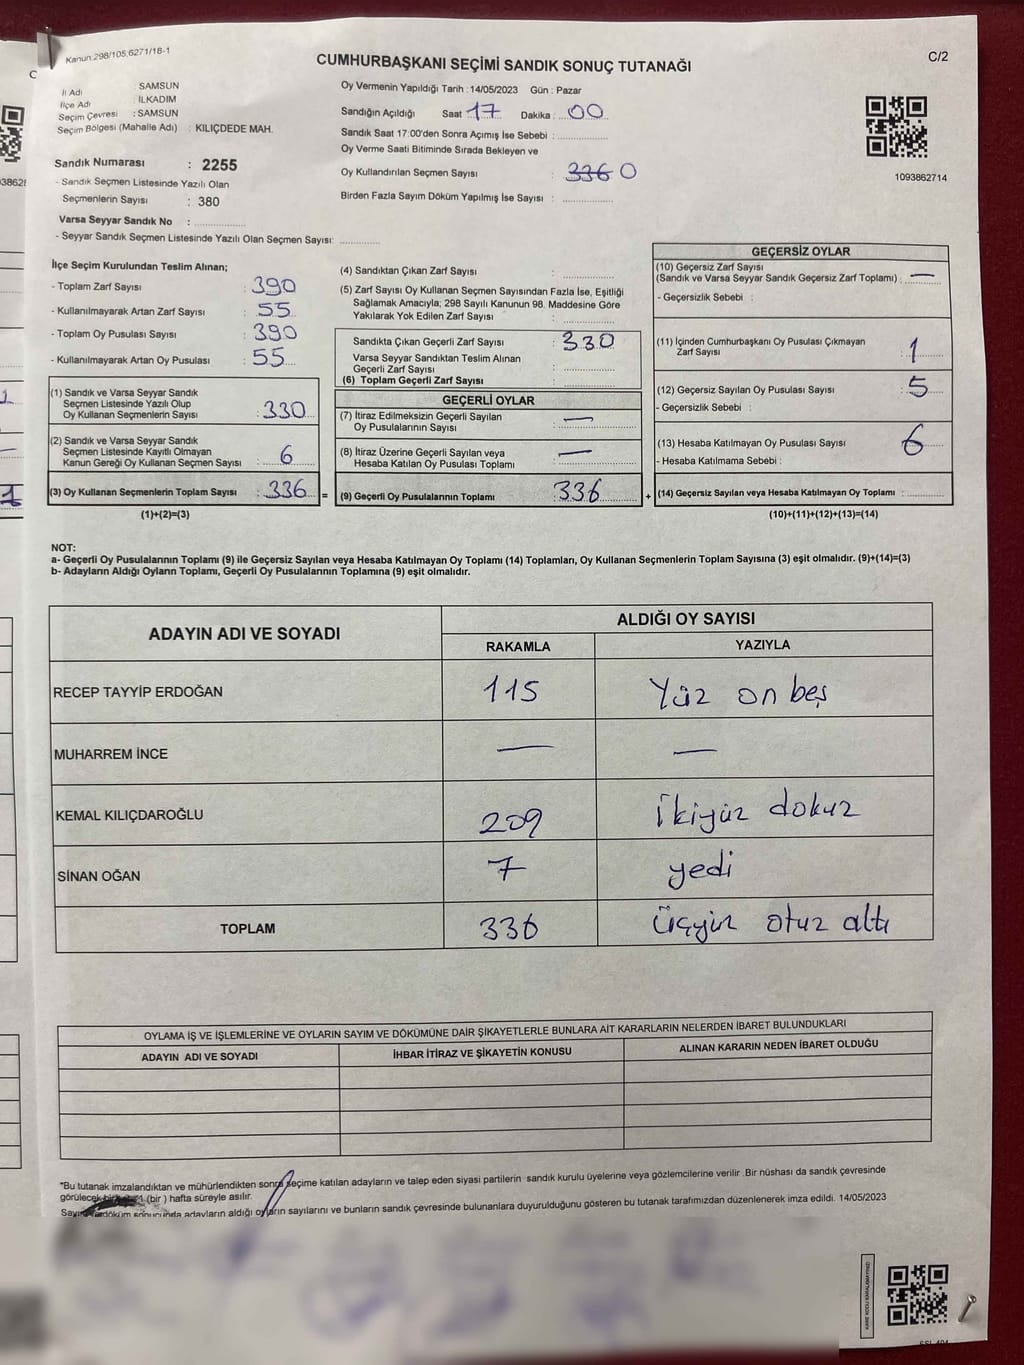 Kanun.298/105,6271/18-1
C/2
CUMHURBAŞKANI SEÇİMİ SANDIK SONUÇ TUTANAĞI
İl Adı SAMSUN
İlçe Adı : İLKADIM
Seçim Çevresi : SAMSUN
Seçim Bölgesi (Mahalle Adı) : KILIÇDEDE MAH.
Sandık Numarası : 2255
- Sandık Seçmen Listesinde Yazılı Olan
Seçmenlerin Sayısı : 380
Varsa Seyyar Sandık No :
- Seyyar Sandık Seçmen Listesinde Yazılı Olan Seçmen Sayısı:
Oy Vermenin Yapıldığı Tarih : 14/05/2023 Gün : Pazar
Sandığın Açıldığı Saat 17 Dakika : 00
Sandık Saat 17:00'den Sonra Açımış İse Sebebi :
Oy Verme Saati Bitiminde Sırada Bekleyen ve
Oy Kullandırılan Seçmen Sayısı : 336 0
Birden Fazla Sayım Döküm Yapılmış İse Sayısı :
1093862714
İlçe Seçim Kurulundan Teslim Alınan;
- Toplam Zarf Sayısı : 390
- Kullanılmayarak Artan Zarf Sayısı : 55
- Toplam Oy Pusulası Sayısı : 390
- Kullanılmayarak Artan Oy Pusulası : 55
(1) Sandık ve Varsa Seyyar Sandık
Seçmen Listesinde Yazılı Olup
Oy Kullanan Seçmenlerin Sayısı : 330
(2) Sandık ve Varsa Seyyar Sandık
Seçmen Listesinde Kayıtlı Olmayan
Kanun Gereği Oy Kullanan Seçmen Sayısı : 6
(3) Oy Kullanan Seçmenlerin Toplam Sayısı : 336
(1)+(2)=(3)
=
(4) Sandıktan Çıkan Zarf Sayısı :
(5) Zarf Sayısı Oy Kullanan Seçmen Sayısından Fazla İse, Eşitliği
Sağlamak Amacıyla; 298 Sayılı Kanunun 98. Maddesine Göre
Yakılarak Yok Edilen Zarf Sayısı :
Sandıkta Çıkan Geçerli Zarf Sayısı : 330
Varsa Seyyar Sandıktan Teslim Alınan
Geçerli Zarf Sayısı :
(6) Toplam Geçerli Zarf Sayısı :
GEÇERLİ OYLAR
(7) İtiraz Edilmeksizin Geçerli Sayılan
Oy Pusulalarının Sayısı : —
(8) İtiraz Üzerine Geçerli Sayılan veya
Hesaba Katılan Oy Pusulası Toplamı : —
(9) Geçerli Oy Pusulalarının Toplamı 336
+
GEÇERSİZ OYLAR
(10) Geçersiz Zarf Sayısı
(Sandık ve Varsa Seyyar Sandık Geçersiz Zarf Toplamı) : —
- Geçersizlik Sebebi :
(11) İçinden Cumhurbaşkanı Oy Pusulası Çıkmayan
Zarf Sayısı : 1
(12) Geçersiz Sayılan Oy Pusulası Sayısı : 5
- Geçersizlik Sebebi :
(13) Hesaba Katılmayan Oy Pusulası Sayısı : 6
- Hesaba Katılmama Sebebi :
(14) Geçersiz Sayılan veya Hesaba Katılmayan Oy Toplamı :
(10)+(11)+(12)+(13)=(14)
NOT:
a- Geçerli Oy Pusulalarının Toplamı (9) ile Geçersiz Sayılan veya Hesaba Katılmayan Oy Toplamı (14) Toplamları, Oy Kullanan Seçmenlerin Toplam Sayısına (3) eşit olmalıdır. (9)+(14)=(3)
b- Adayların Aldığı Oyların Toplamı, Geçerli Oy Pusulalarının Toplamına (9) eşit olmalıdır.
ADAYIN ADI VE SOYADI ALDIĞI OY SAYISI
RAKAMLA YAZIYLA
RECEP TAYYİP ERDOĞAN 115 Yüz on beş
MUHARREM İNCE — —
KEMAL KILIÇDAROĞLU 209 İkiyüz dokuz
SİNAN OĞAN 7 yedi
TOPLAM 336 Üçyüz otuz altı
OYLAMA İŞ VE İŞLEMLERİNE VE OYLARIN SAYIM VE DÖKÜMÜNE DAİR ŞİKAYETLERLE BUNLARA AİT KARARLARIN NELERDEN İBARET BULUNDUKLARI
ADAYIN ADI VE SOYADI İHBAR İTİRAZ VE ŞİKAYETİN KONUSU ALINAN KARARIN NEDEN İBARET OLDUĞU
*Bu tutanak imzalandıktan ve mühürlendikten sonra seçime katılan adayların ve talep eden siyasi partilerin sandık kurulu üyelerine veya gözlemcilerine verilir .Bir nüshası da sandık çevresinde
görülecek bir (bir ) hafta süreyle asılır.
Sayım ve döküm sonucunda adayların aldığı oyların sayılarını ve bunların sandık çevresinde bulunanlara duyurulduğunu gösteren bu tutanak tarafımızdan düzenlenerek imza edildi. 14/05/2023